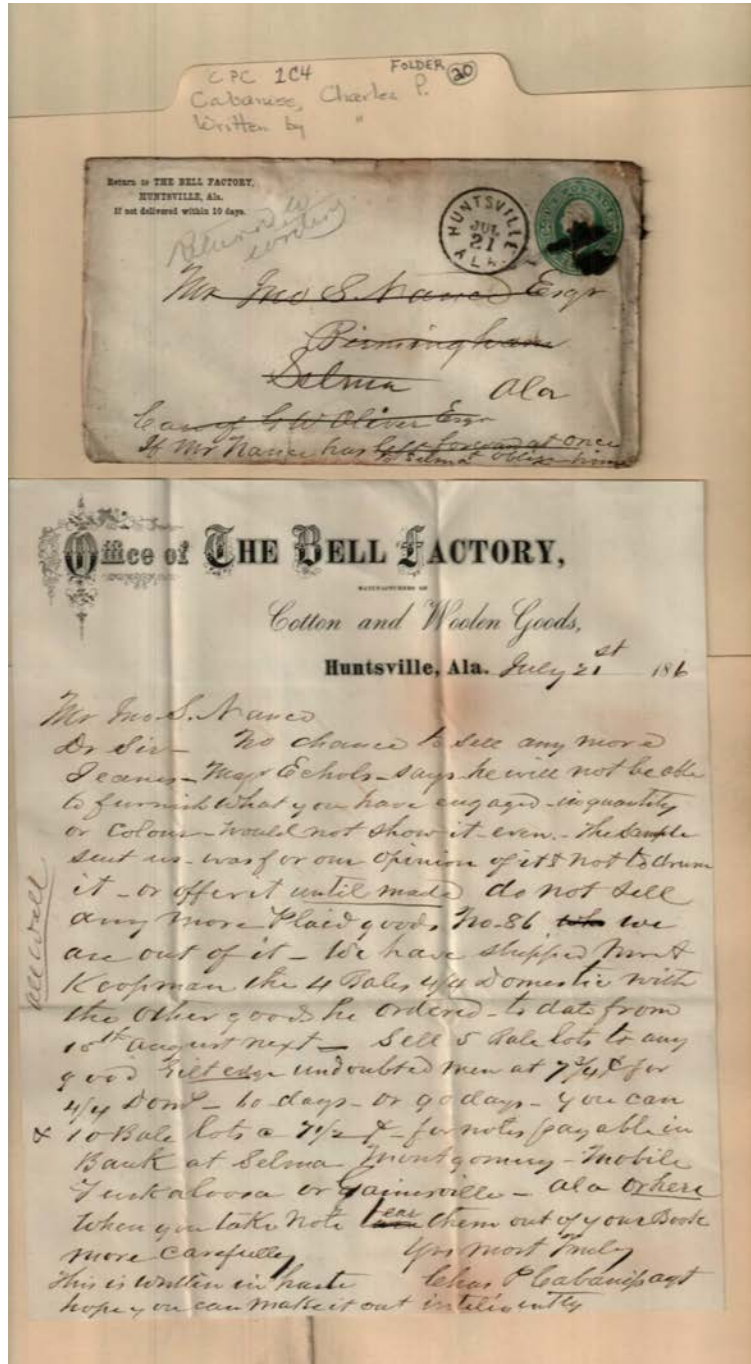 CPC 1C4 FOLDER 20
Cabaniss, Charles P.
Written by "
Return to THE BELL FACTORY,
HUNTSVILLE, Ala.
If not delivered within 10 days.
Returned to
writer
HUNTSVILLE
JUL
21
ALA.
Mr Jno S. Nance Esqr
Birmingham
Selma Ala
Care of G W Oliver Esqr
If Mr Nance has left forward at once
to Selma & oblige
Office of THE BELL FACTORY,
MANUFACTURERS OF
Cotton and Woolen Goods,
Huntsville, Ala. July 21st 186
Mr Jno. S. Nance
Dr Sir - No chance to sell any more
Jeanes - Majr Echols - says he will not be able
to furnish what you have engaged - in quantity
or Colour - would not show it - even. - The Sample
sent us - was for our opinion of it & not to drum
it - or offer it until made do not sell
any more Plaid goods No. 86 we
are out of it - We have shipped
Koopman the 4 Bales 4/4 Domestic with
the other goods he ordered - to date from
10th august next - Sell 5 Bale lots to any
good Gilt edge undoubted men at 7 3/4 ¢ for
4/4 Dom - 60 days - or 90 days - you can
& 10 Bale lots a 7 1/2 ¢ - for notes payable in
Bank at Selma Montgomery - Mobile
Tuskaloosa or Gainesville - Ala or here
When you take Note tear them out of your Book
more carefully Yrs most Truly
This is written in haste Chas P Cabaniss agt
hope you can make it out inteligently
all well